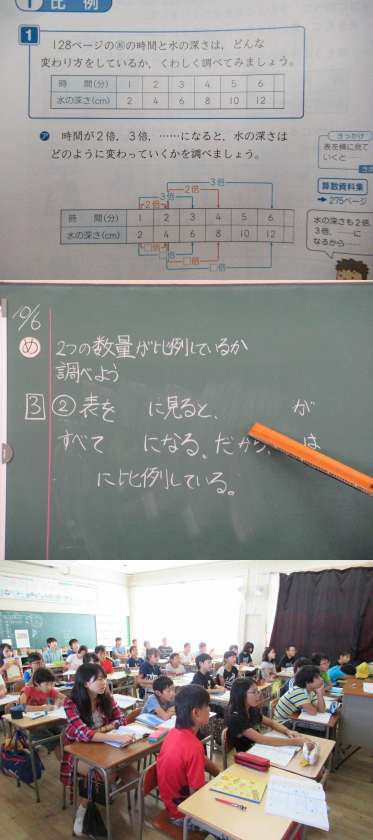 1 比例
1
128ページの㋐の時間と水の深さは，どんな
変わり方をしているか，くわしく調べてみましょう。
時 間(分) 1 2 3 4 5 6
水の深さ(cm) 2 4 6 8 10 12
㋐ 時間が2倍，3倍，……になると，水の深さは
どのように変わっていくかを調べましょう。
きっかけ
表を横に見て
いくと…
算数資料集
➡ 275ページ
3倍
2倍
3倍
2倍
時 間(分) 1 2 3 4 5 6
水の深さ(cm) 2 4 6 8 10 12
□倍
□倍
□倍
□倍
水の深さも2倍，
3倍，……に
なるから…
10/6
め 2つの数量が比例しているか
調べよう
3 ② 表を に見ると、 が
すべて になる。だから、 は
に比例している。